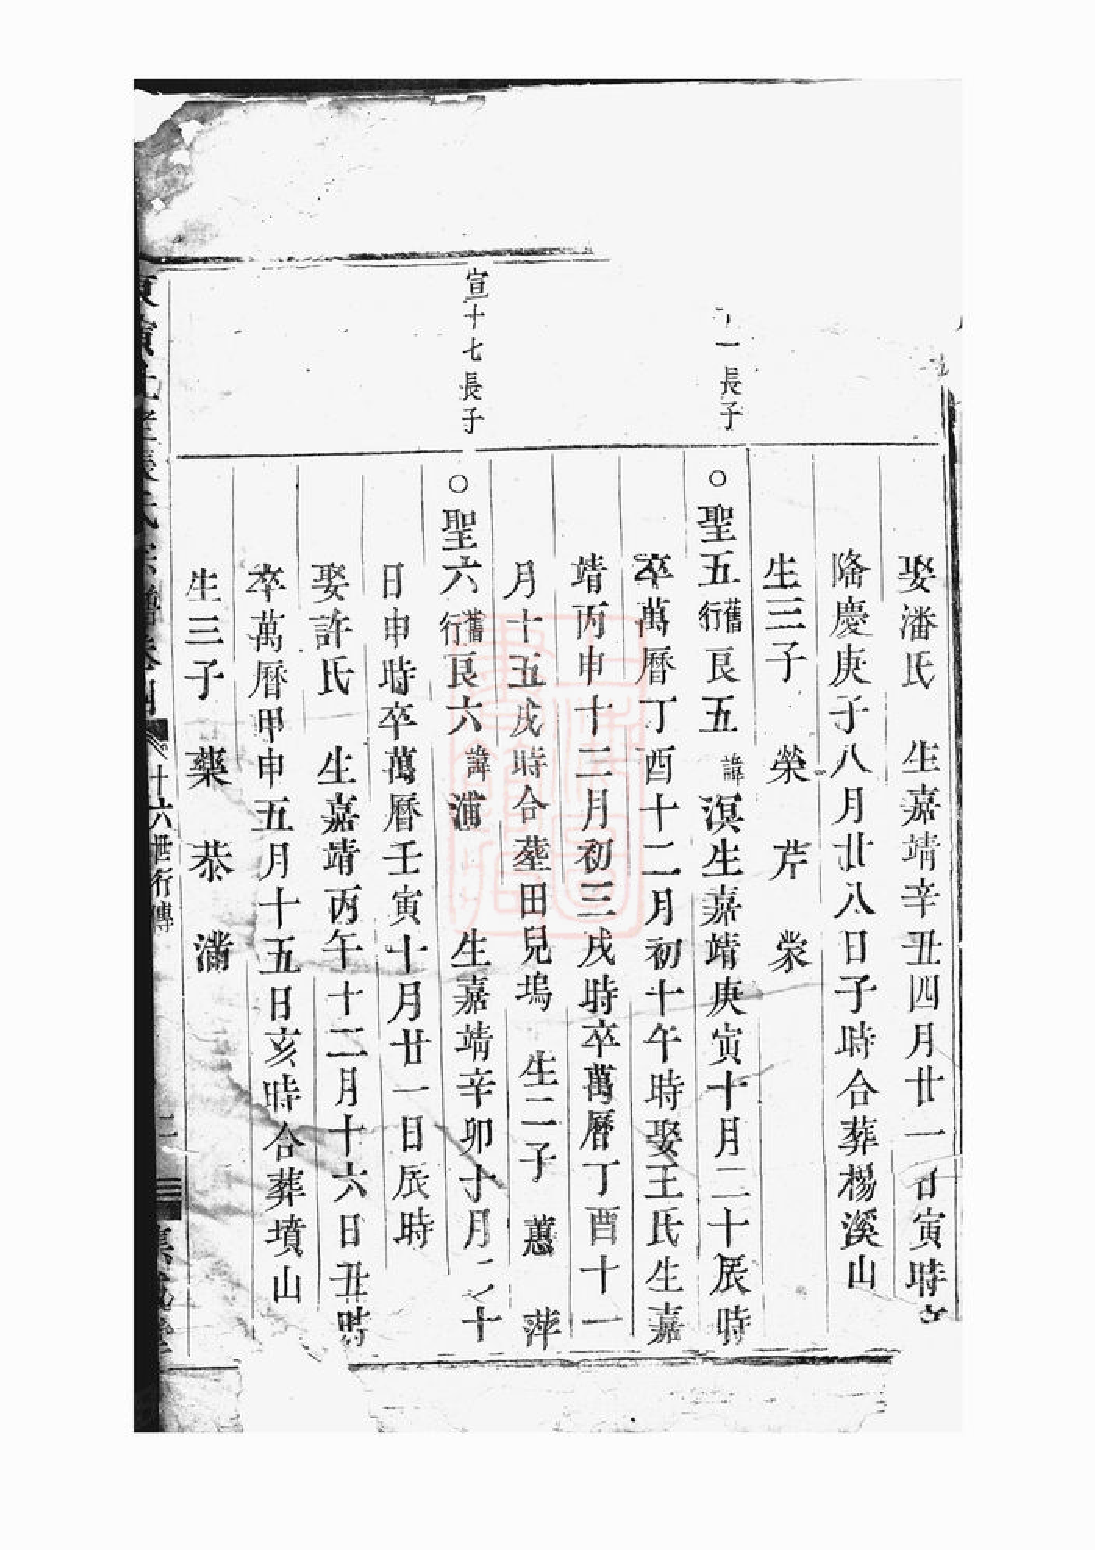 娶潘氏 生嘉靖辛丑四月廿一日寅時卒
隆慶庚子八月廿八日子時合葬楊溪山
生三子 榮 芹 裳
一長子
○聖五舊行良五諱溟生嘉靖庚寅十月二十辰時
卒萬曆丁酉十二月初十午時娶王氏生嘉
靖丙申十三月初三戌時卒萬曆丁酉十一
月十五戌時合塟田兒塢 生二子 蕙 萍
宣十七長子
○聖六舊行良六諱浦 生嘉靖辛卯十月二十
日申時卒萬曆壬寅十月廿一日辰時
娶許氏 生嘉靖丙午十二月十六日丑時
卒萬曆甲申五月十五日亥時合葬墳山
生三子 藥 恭 滿
氏宗譜卷四 十六世行傳 二 集成堂